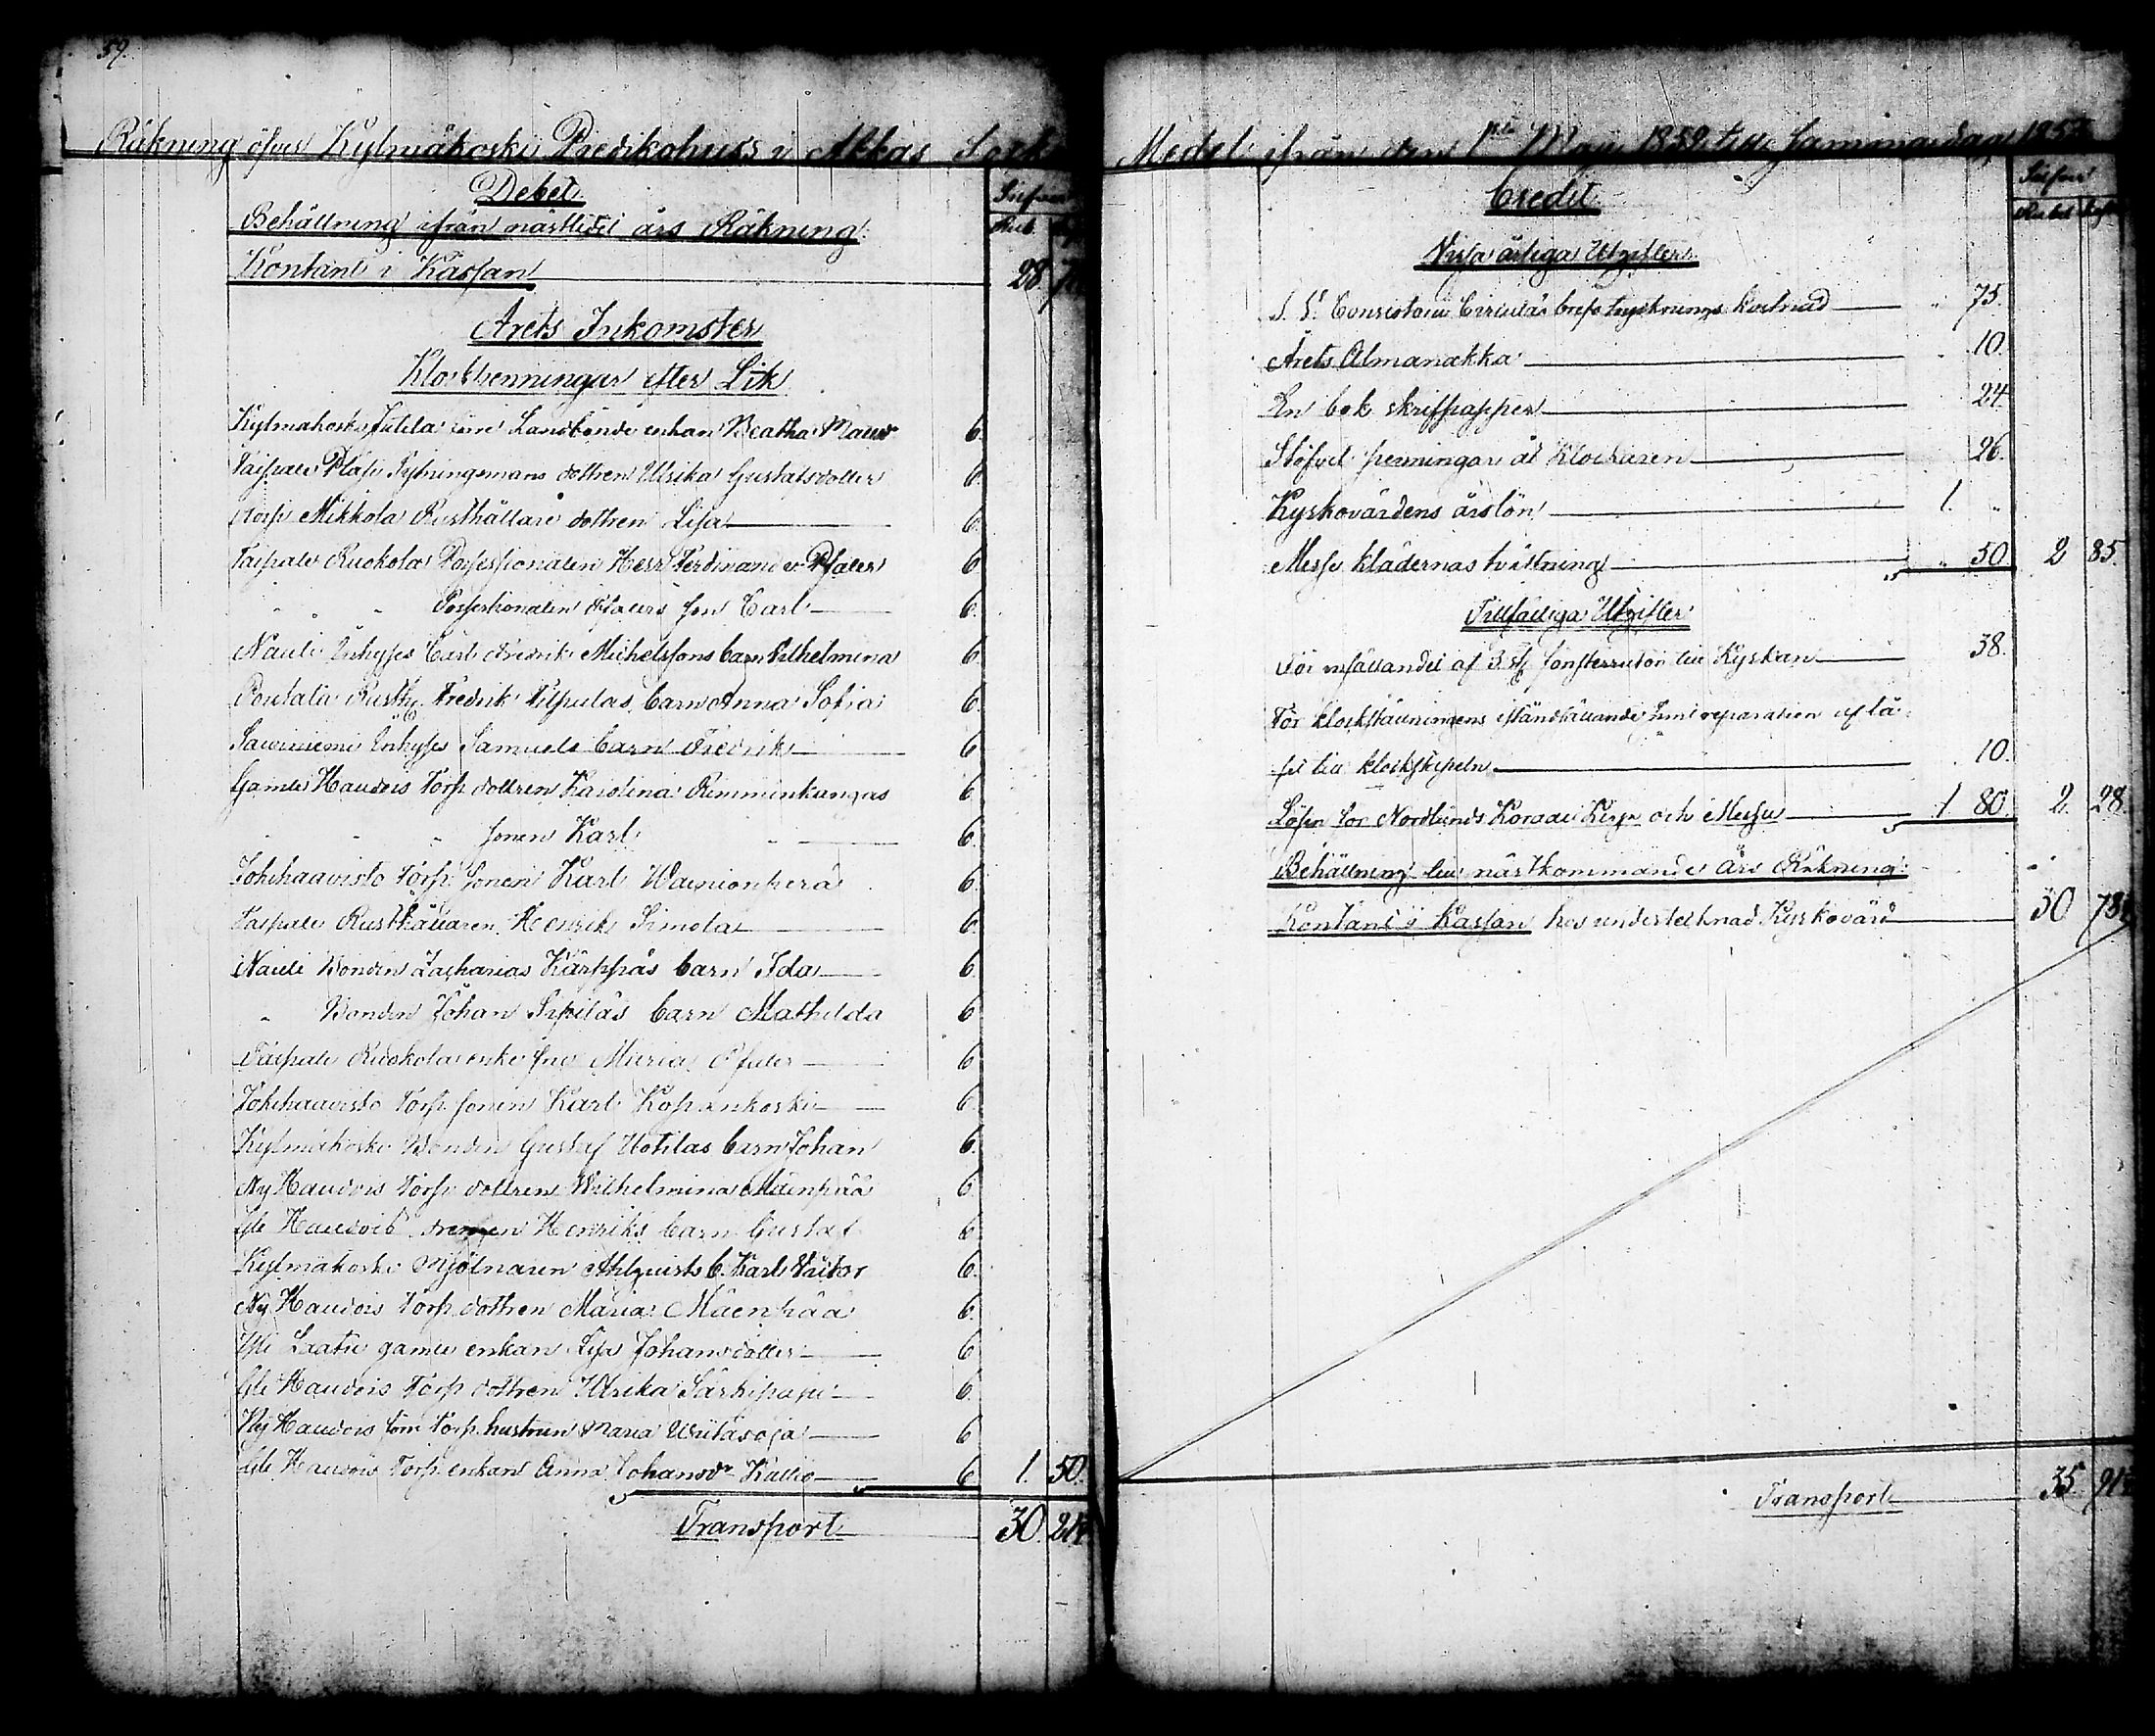 59.
Räkning öfver Kylmäkoski Predikohuss i Akkas Sock
Debet
Silfver
Behållning ifrån nästledit års Räkning
Rub.
Kontant i Kassan 28
Årets Inkomster
Klockpenningar efter Lik
Kylmäkoski Landbonde enkan Beatha 6.
Taipale Sytningsmans dottren Ulrika Gustafsdotter 6.
Mikkola Rusthållare dottren Lisa 6.
Taipale Ruokola Possessionaten Herr Ferdinand v. Pfaler 6
" " " Possessionaten Pfalers son Carl 6.
Nauli Inhyses Carl Fredrik Michelssons barn Vilhelmina 6
Pentala Rusth. Fredrik Filpulas barn Anna Sofia 6.
Sauriniemi Inhyses Samuels barn Fredrik 6
Gamle Haudois Torp. dottren Karolina Remminkangas 6
" " " sonen Karl 6.
Johehaavisto Torp. sonen Karl Wainionperä 6.
Taipale Rusthållaren Henrik Simola 6
Nauli Bonden Zacharias Kärppäs barn Ida 6
" Bonden Johan Sipiläs barn Mathilda 6
Taipale Ruokola enke fru Maria Pfaler 6
Johehaavisto Torp. sonen Karl Kopenkoski 6.
Kylmäkoski Bonden Gustaf Uotilas barn Johan 6.
Ny Haudois Torp. dottren Wilhelmina Mäenpää 6
Gle Haudois drengen Henriks barn Gustaf 6
Kylmäkoski Mjölnaren Ahlqvists b. Karl Victor 6.
Ny Haudois Torp. dottren Maria Mäenpää 6.
Laatu gamle enkan Lisa Johansdotter 6
Gle Haudois Torp. dottren Ulrika Särkipaju 6.
Ny Haudois Torp. hustrun Maria 6
Gle Haudois Torp. enkan Anna Johansdr Kallio 6 1. 50.
Transport 30. 21
Medel ifrån den 1sta Maji 1852 till samma dag 185
Credit
Silfver
Rubel
Vissa årliga Utgifter
Consistorii Circulär brefs tryckningskostnad " 75.
Årets Almanakka " 10.
En bok skrifpapper " 24
Stöfvel penningar åt Klockaren 26.
Kyrkovärdens årslön 1. "
Messe klädernas tvättning " 50 2 85.
Tillfälliga Utgifter
För insättandet af 3 st. fönsterrutor till Kyrkan 38.
För klockställningens iståndsättande samt reparation af lå-
set till klockstapeln 10.
Lösen för Nordlunds Koraal Kyr. och Messu 1 80. 2. 28.
Behållning till nästkommande års Räkning
Kontant i Kassan hos undertecknad Kyrkovärd 30 78
Transport 35 91